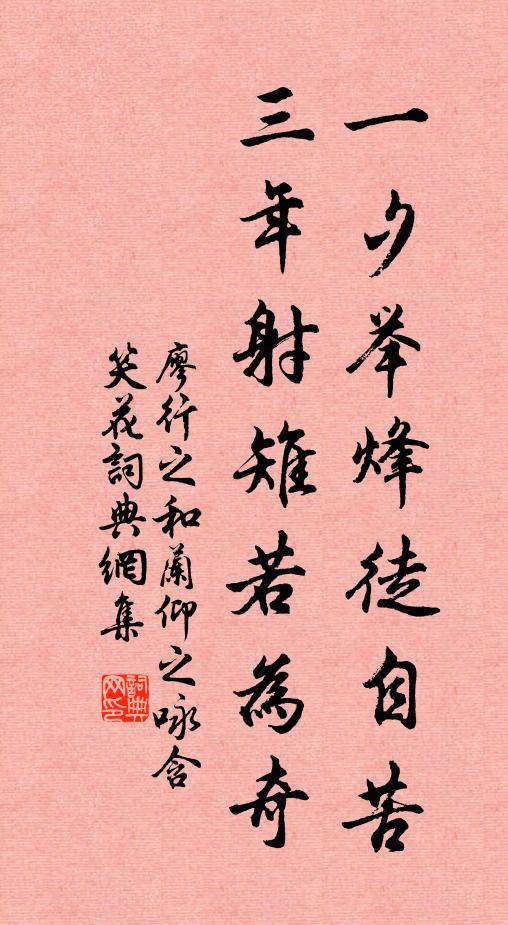 一夕举烽徒自苦
三年射雉若為奇
廖行之和蘭仰之咏含
笑花詞典網集
詞典
网印